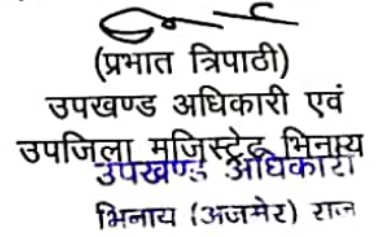 (प्रभात त्रिपाठी)
उपखण्ड अधिकारी एवं
उपजिला मजिस्ट्रेट भिनाय
उपखण्ड अधिकारी
भिनाय (अजमेर) राज